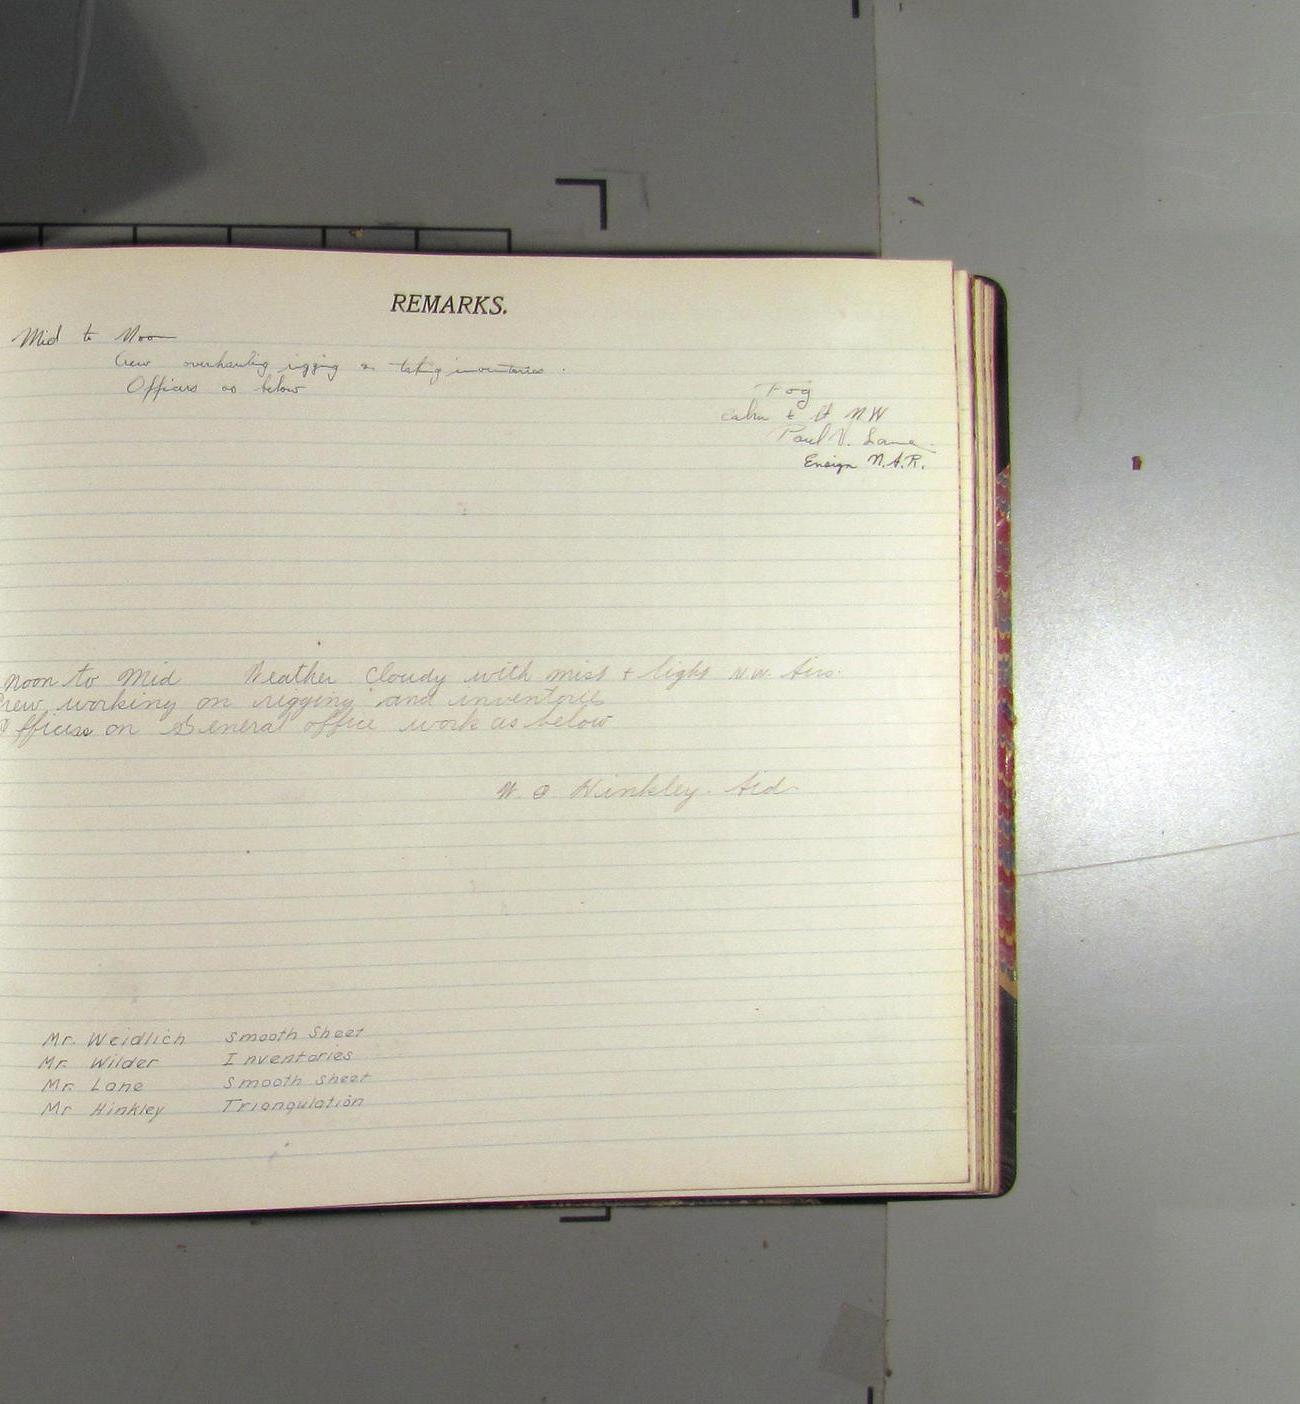 REMARKS.
Mid to Noon
Crew overhauling rigging & taking inventories.
Officers as below
Fog
Calm & lt NW
Paul V. Lane
Ensign N.A.R.
Noon to Mid Weather Cloudy with mist + light NW. Airs.
Crew working on rigging and inventories
Officers on General office work as below
W. O Hinkley. Aid
Mr. Weidlich Smooth Sheet
Mr. Wilder Inventories
Mr. Lane Smooth sheet
Mr Hinkley Triangulation